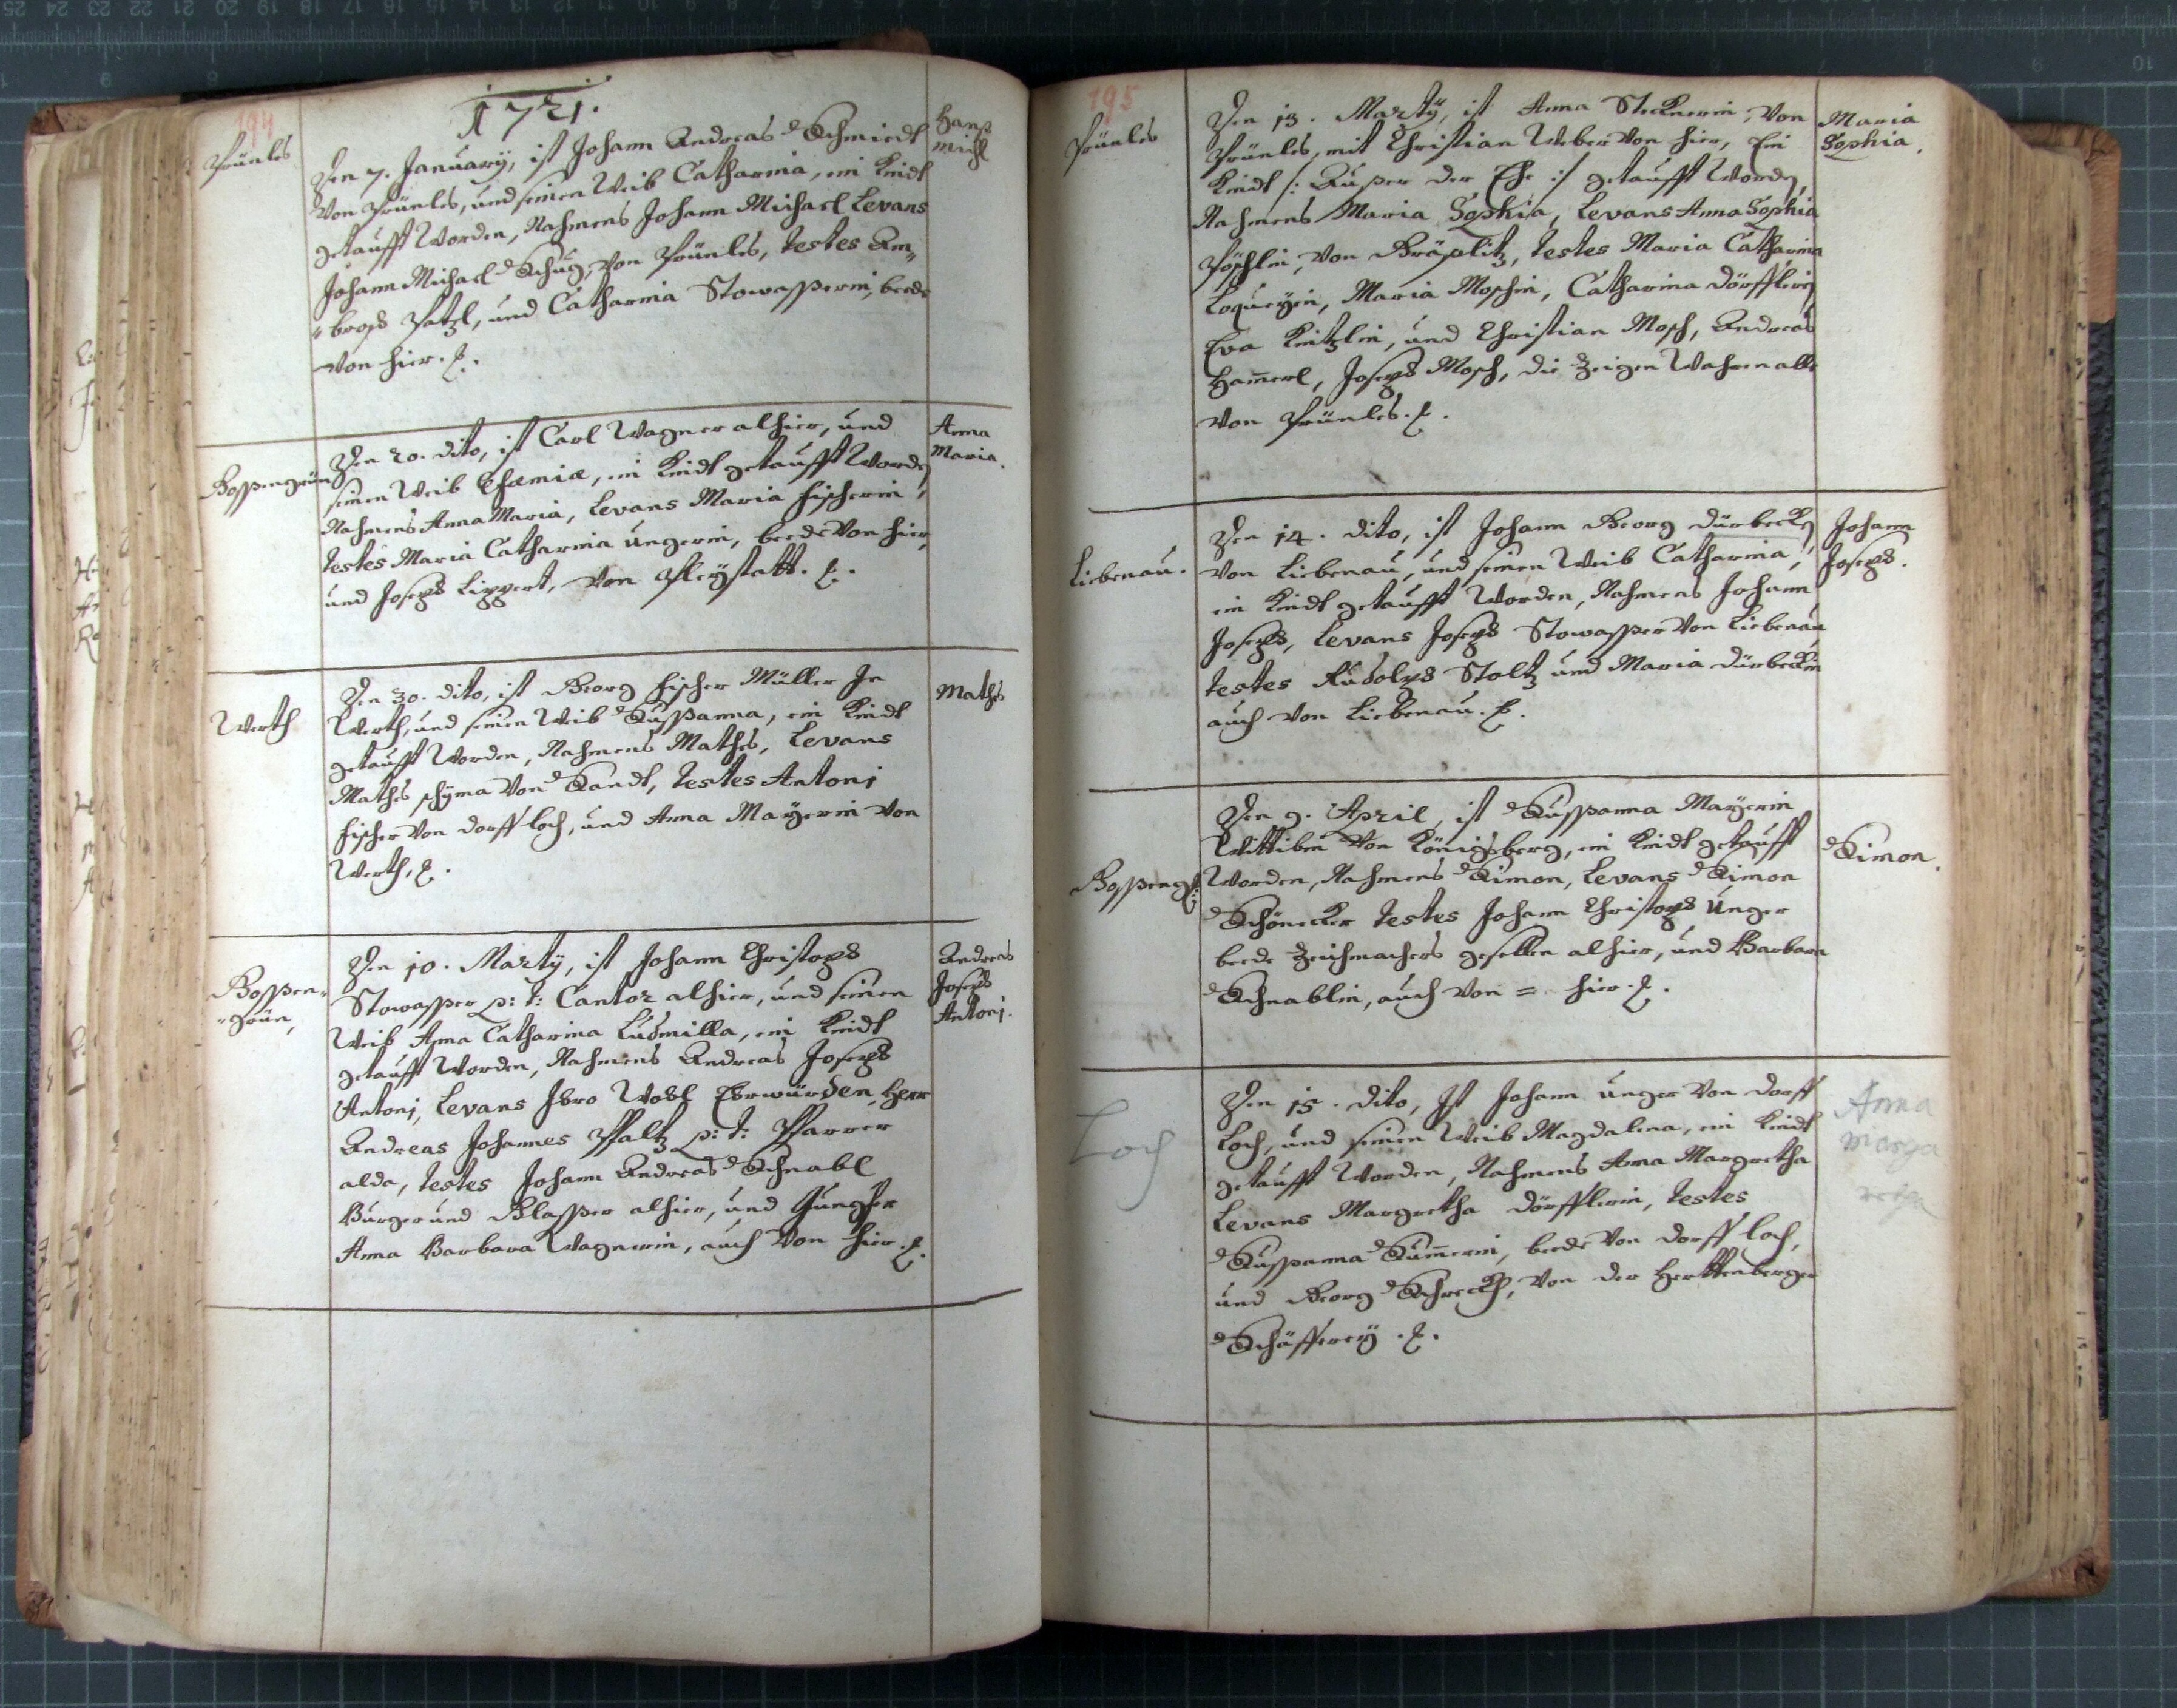 194
1721.
Prünles
Den 7. January, ist Johann Andreas Schmiedt
Von Prünles, und seinen Weib Catharina, ein Kindt
getaufft Worden, Nahmens Johann Michael Levans
Johann Michael Schug, von Prünles, testes Am„
„brosi Patzl, und Catharina Stowasserin, beede
von hier.
Hanß
Michl
Bossengrün
Den 20. dito, ist Carl Wagner alhier, und
seinen Weib Efæmiæ, ein Kindt getaufft Worden
Nahmens Anna Maria, Levans Maria Fischerin,
testes Maria Catharina Ungerin, beede Von hier,
und Joseph Lippert, von Pleystatt.
Anna
Maria.
Werth
Den 30. dito, ist Georg Fischer Müller In
Werth, und seinen Weib Sussanna, ein Kindt
getaufft Worden, Nahmens Mathes, Levans
Mathes Von Sandt, testes Antoni
Fischer Von dorff loch, und Anna Mayerin von
Werth,
Mathes
Bossen„
„grün,
Den 10. Marty, ist Johann Christoph
Stowasser p: t: Cantor alhier, und seinen
Weib Anna Catharina Ludmilla, ein Kindt
getaufft Worden, Nahmens Andreas Joseph
Antoni, Levans Ihro Wohl Ehrwürden, Herr
Andreas Johannes Pfaltz p: t: Pfarrer
alda, testes Johann Andreas Schnabl
Burger und Glasser alhier, und Jungfer
Anna Barbara Wagnerin, auch Von hier.
Andreas
Joseph
Antoni.
195
Prünles
Den 13. Marty, ist Anna Stecknerin, Von
Prünles, mit Christian Weber von hier, Ein
Kindt /: Außer der Ehe :/ getaufft Worden,
Nahmens Maria Sophia, Levans Anna Sophia
Pöschlin, von testes Maria Catharina
Maria Moschin, Catharina Dörfflerin
Eva Knitzlin, und Christian Mosch, Andreas
Ham̄erl, Joseph Mosch, die Zeigen Wahren alle
Von Prünles.
Maria
Sophia.
Liebenau.
Den 14. dito, ist Johann Georg Dürbeckh
Von Liebenau, und seinen Weib Catharina,
ein Kindt getaufft Worden, Nahmens Johann
Joseph, Levans Joseph Stowasser Von Liebenau
testes Rudolph Stoltz und Maria Dürbeckin
auch von Liebenau.
Johann
Joseph.
Bosseng:
Den 9. April, ist Sussanna Mayerin
Wittiben Von Königsberg, ein Kindt getaufft
Worden, Nahmens Simon, Levans Simon
Schönecker testes Johann Christoph Unger
beede Zeichmachers gesellen alhier, und Barbara
Schnablin, auch von = hier.
Simon.
Loch
Den 15. dito, Ist Johann Unger Von dorff
Loch, und seinen Weib Magdalena, ein Kindt
getaufft Worden, Nahmens Anna Margretha
Levans Margretha Dörfflerin, testes
Sussanna Sum̄erin, beede Von dorff loch,
und Georg Schreckh, Von der Herttenberger
Schäfferey.
Anna